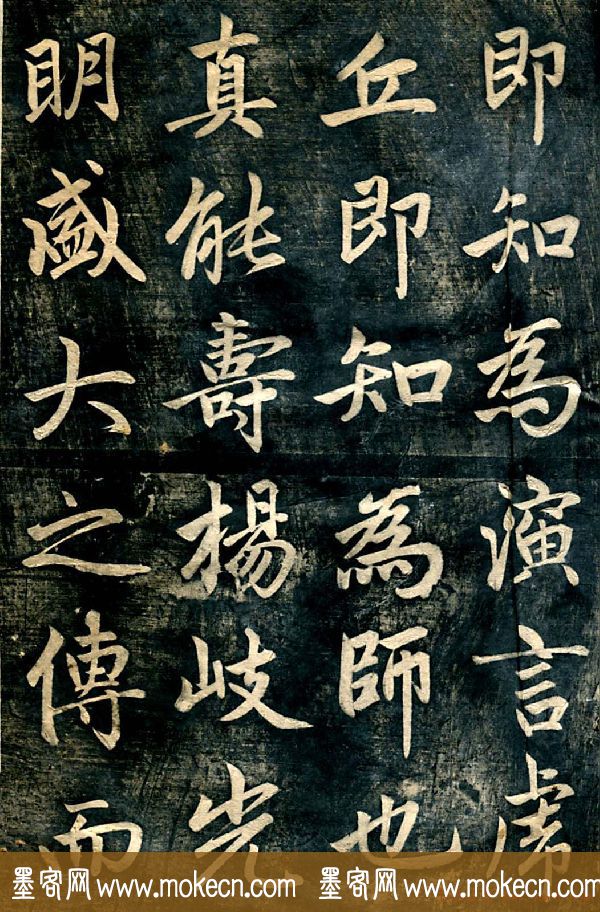 即知為演言虎
丘即知為師也
真能壽楊岐光
明盛大之傳而
墨客网 www.mokecn.com 墨客网 www.mokecn.com